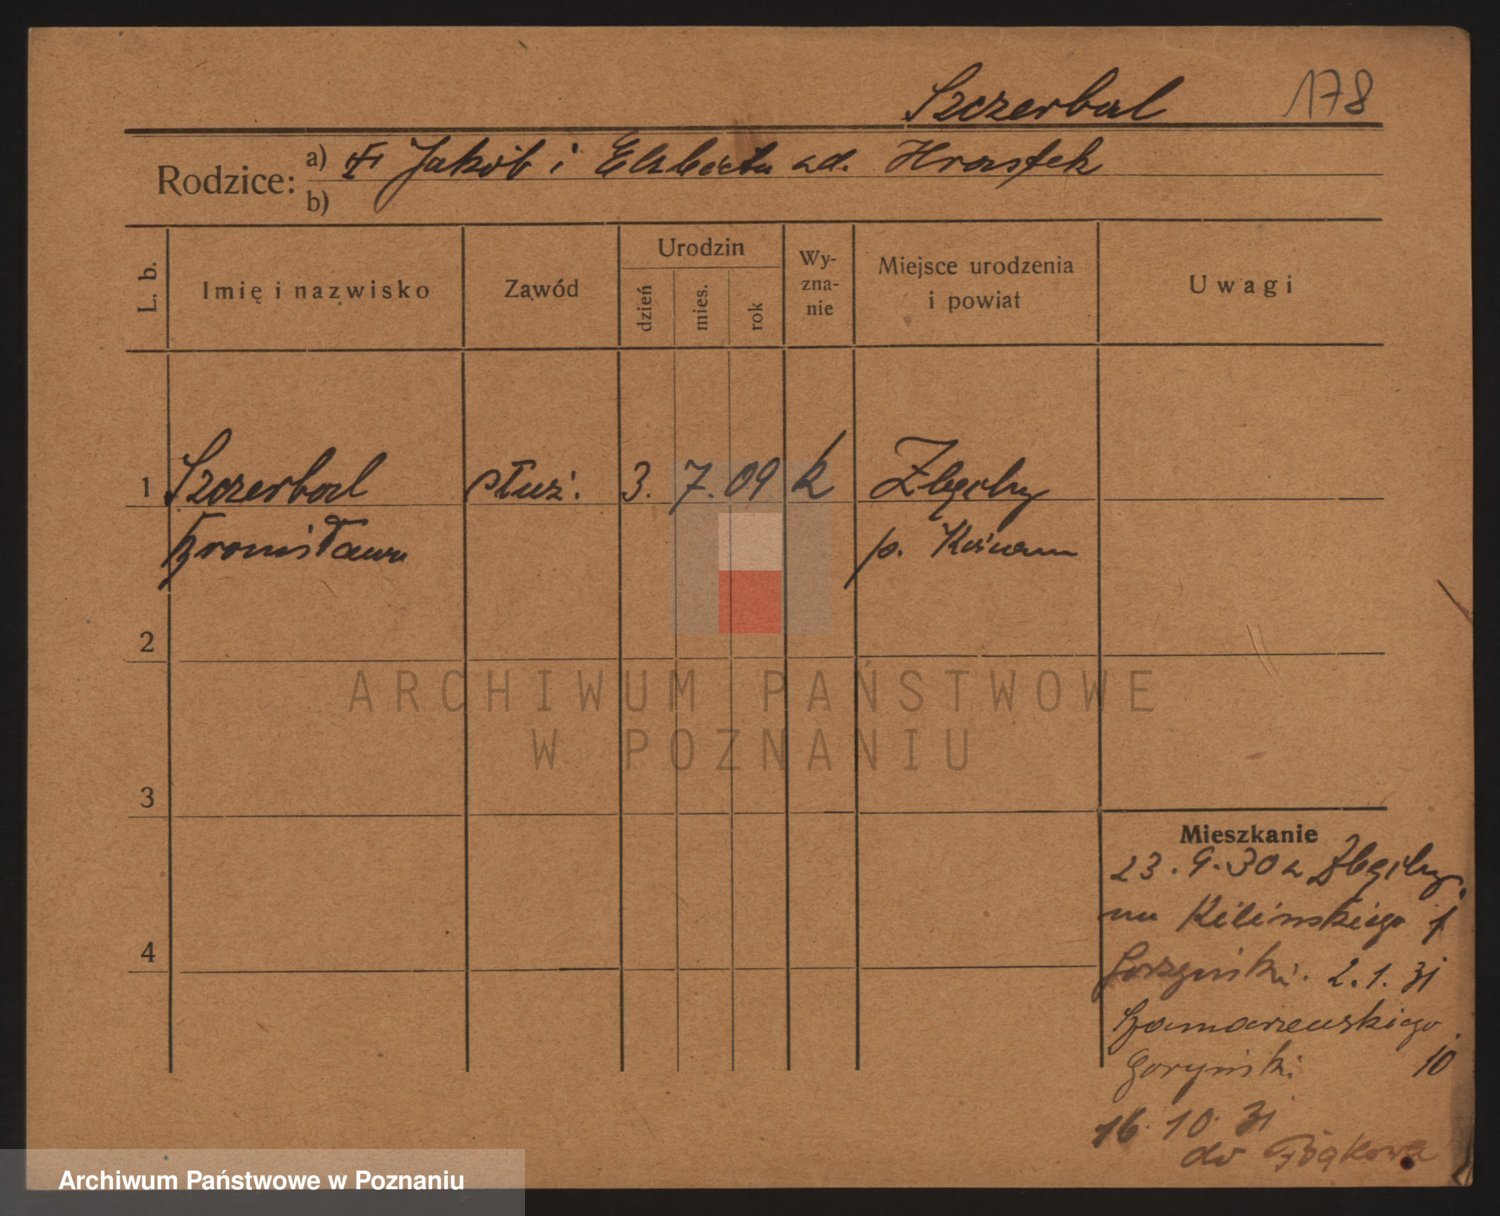 Szczerbal 178
Rodzice: a) Jakób i Elżbieta zd. Hrastek
b)
L. b. Imię i nazwisko Zawód Urodzin dzień mies. rok Wyznanie Miejsce urodzenia i powiat Uwagi
1 Szczerbal służ. 3. 7. 09 k Zbęchy
Bronisława p. Kościan
2
ARCHIWUM PAŃSTWOWE
W POZNANIU
3
Mieszkanie
23. 9. 30 z Zbęchy
na Kilińskiego 1
4
Gorzyński. 2. 1. 31
Szamarzewskiego
Goryński 10
16. 10. 31
do
Archiwum Państwowe w Poznaniu